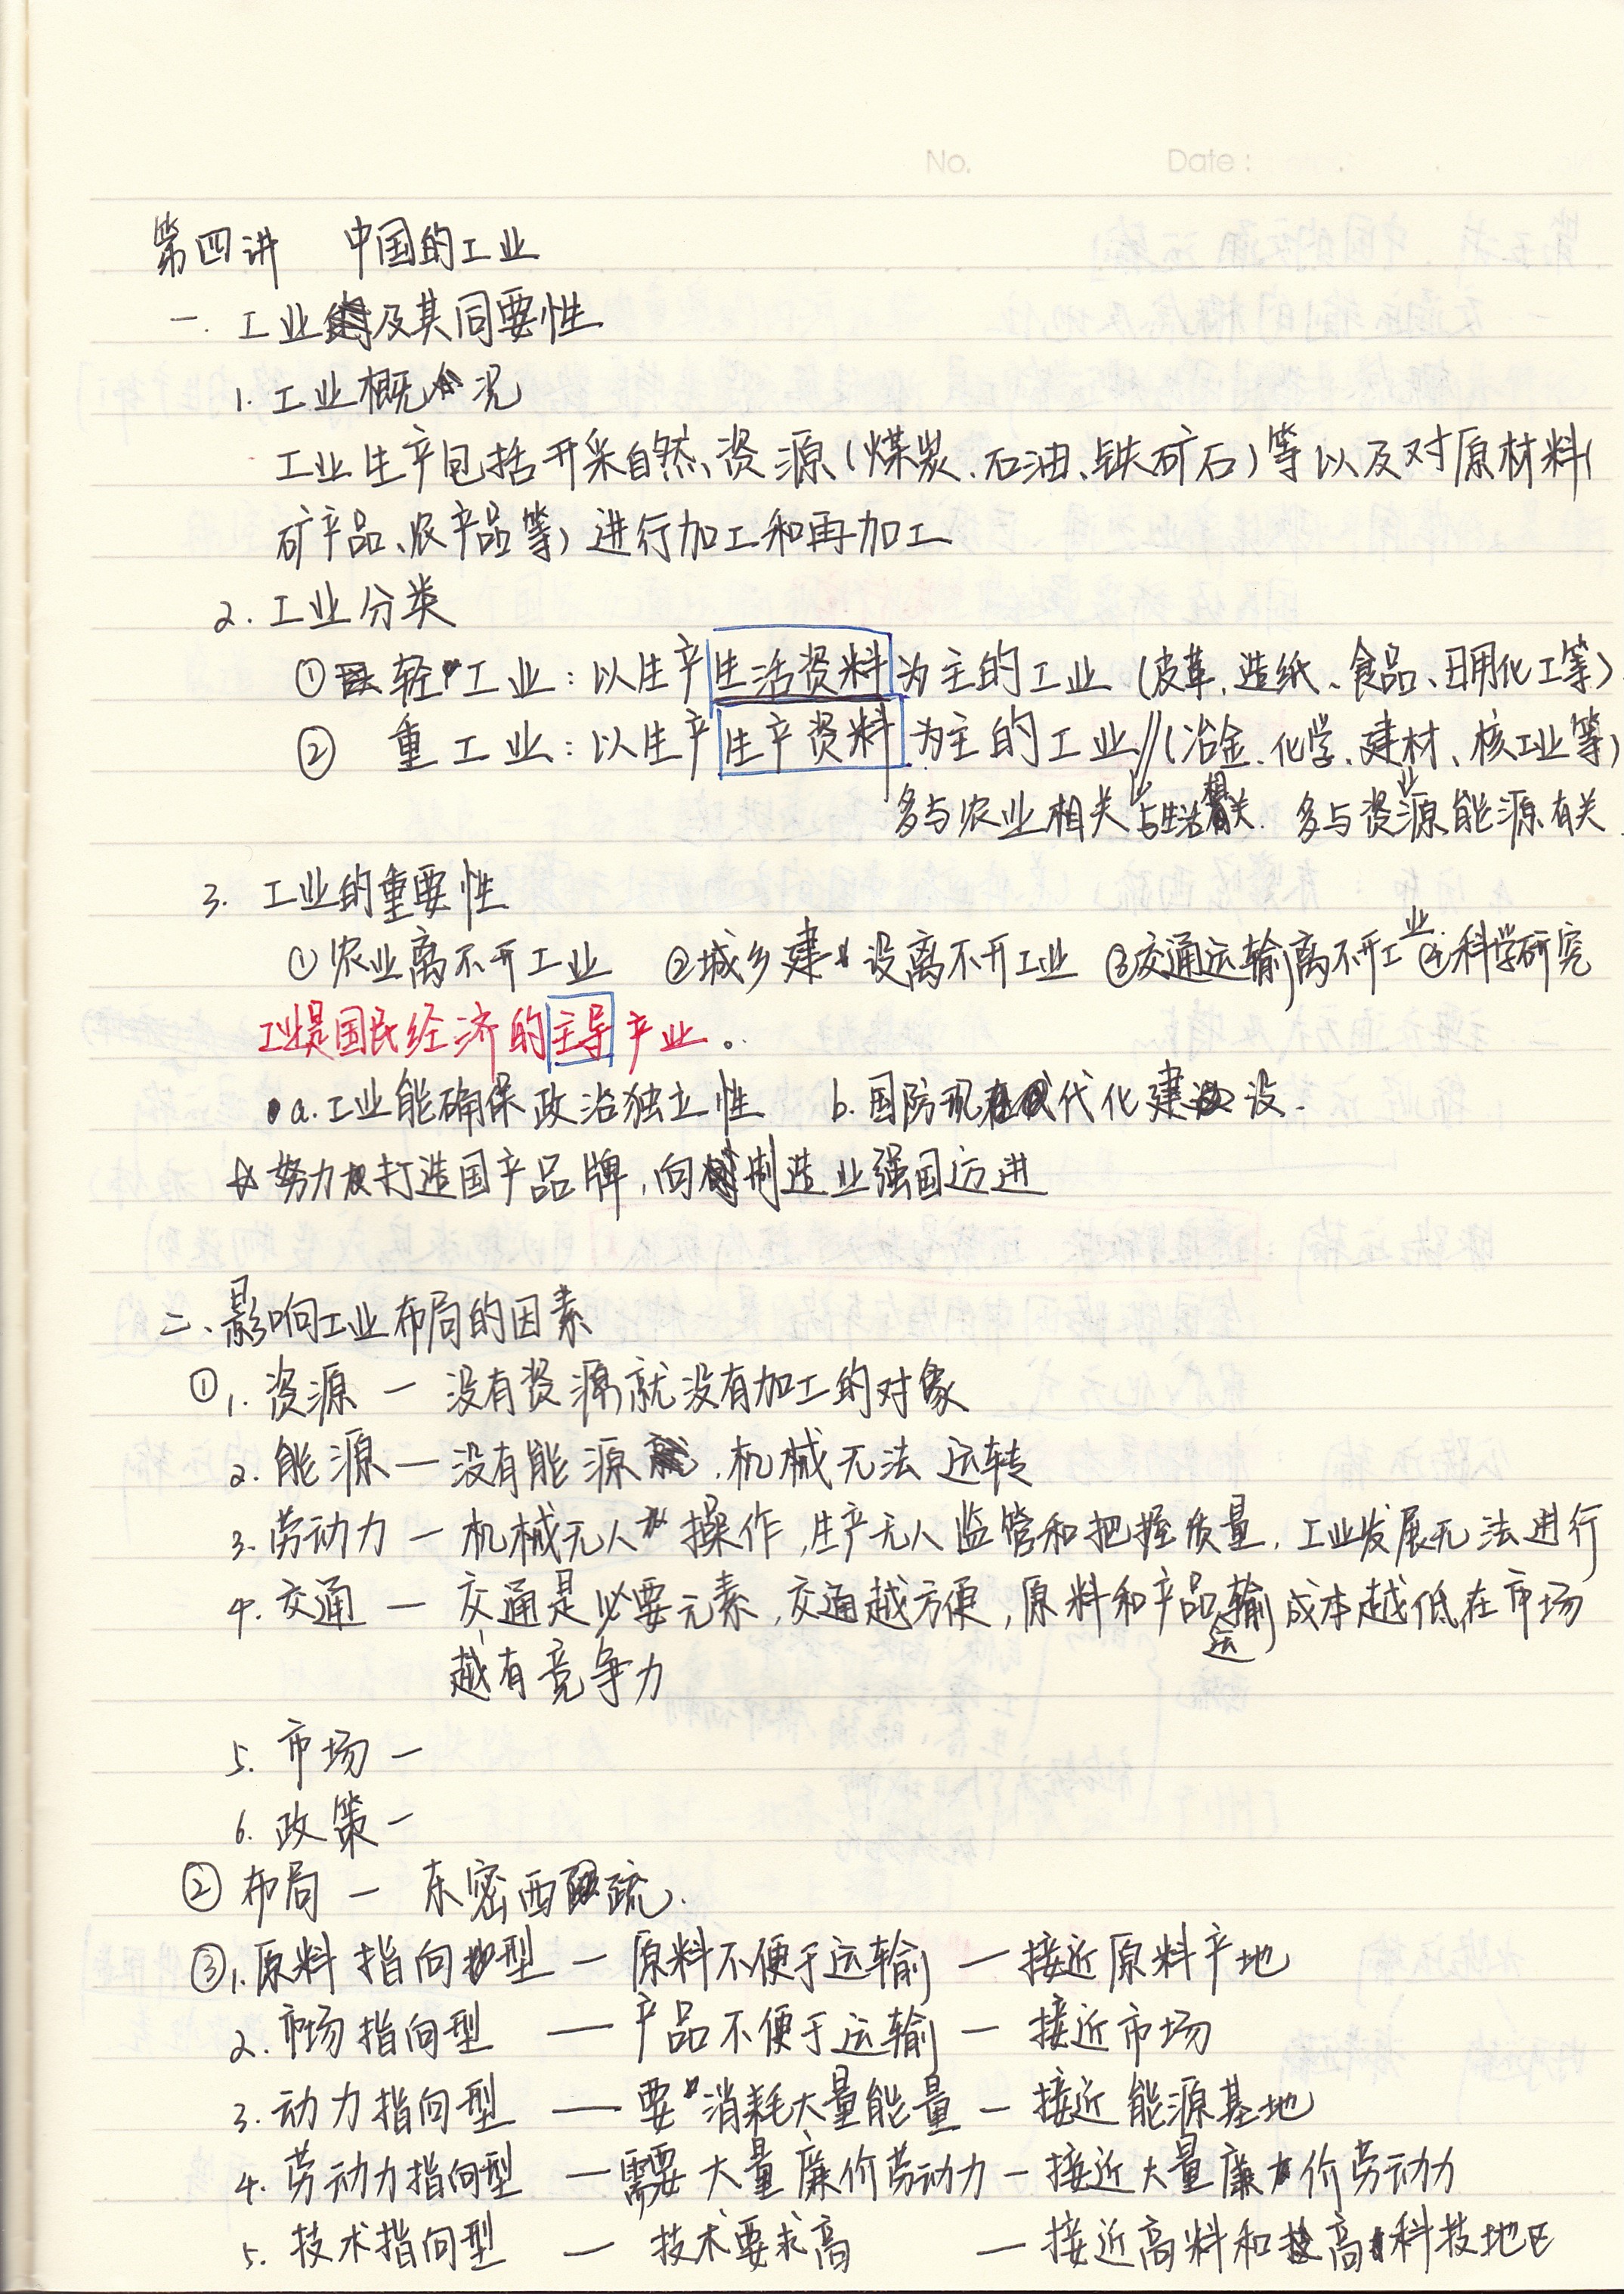 No.    Date:
第四讲 中国的工业
一. 工业及其同要性
1. 工业概况
工业生产包括开采自然资源(煤炭、石油、铁矿石)等以及对原材料(
矿产品、农产品等)进行加工和再加工
2. 工业分类
①轻工业:以生产生活资料为主的工业(皮革、造纸、食品、日用化工等)
② 重工业:以生产生产资料为主的工业(冶金、化学、建材、核工业等)
多与农业相关 与生活相关. 多与资源能源有关.
3. 工业的重要性
①农业离不开工业 ②城乡建设离不开工业 ③交通运输离不开工业 ④科学研究
工业是国民经济的主导产业。
a.工业能确保政治独立性 b.国防现代化建设.
☆努力打造国产品牌,向制造业强国迈进
二、影响工业布局的因素
①1. 资源 — 没有资源,就没有加工的对象
2. 能源 — 没有能源,机械无法运转
3. 劳动力 — 机械无人操作,生产无人监管和把握质量,工业发展无法进行
4. 交通 — 交通是必要元素,交通越方便,原料和产品运输成本越低,在市场
越有竞争力
5. 市场 —
6. 政策 —
② 布局 — 东密西疏.
③1.原料指向型 — 原料不便于运输 — 接近原料产地
2. 市场指向型 — 产品不便于运输 — 接近市场
3. 动力指向型 — 要消耗大量能量 — 接近能源基地
4. 劳动力指向型 — 需要大量廉价劳动力 — 接近大量廉价劳动力
5. 技术指向型 — 技术要求高 — 接近高料和高科技地区